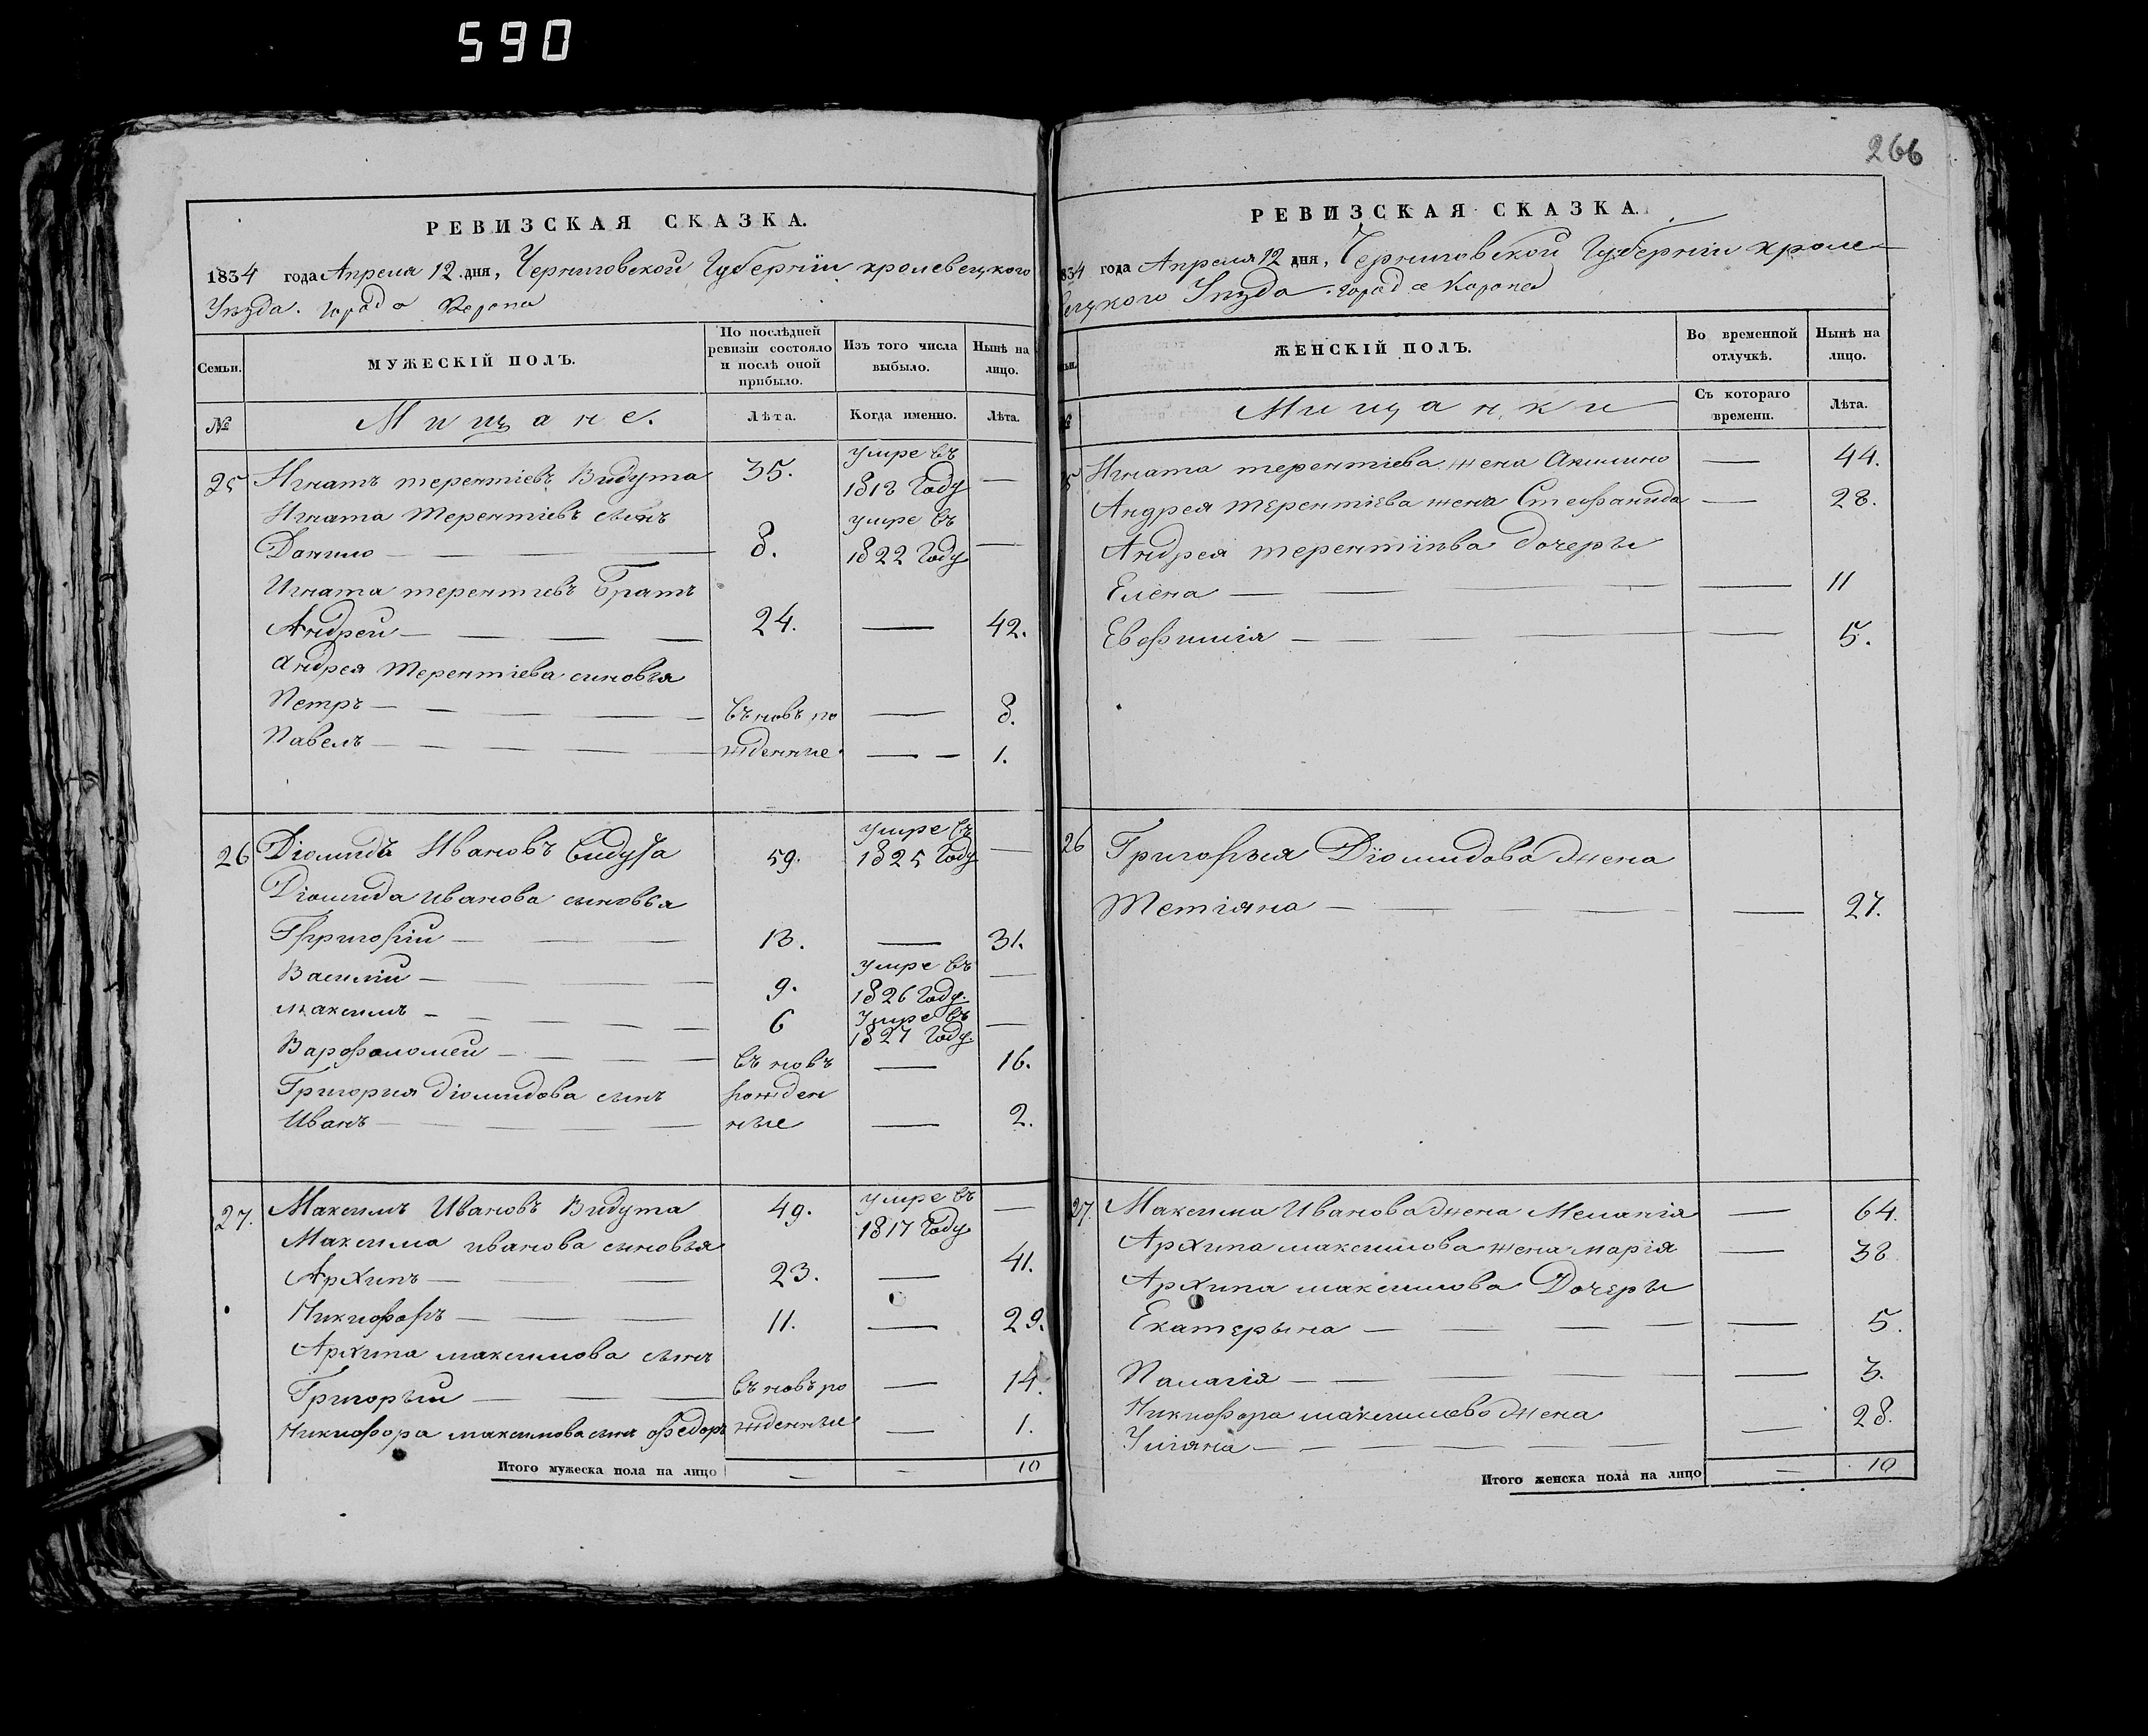 590
266
РЕВИЗСКАЯ СКАЗКА.
1834 года Апреля 12 дня, Черниговской Губернїи кролевецкого
Уезда. города Коропа
Семьи.
МУЖЕСКІЙ ПОЛЪ.
По послѣдней ревизіи состояло и послѣ оной прибыло.
Изъ того числа выбыло.
Нынѣ на лицо.
№
Мищане.
Лѣта.
Когда именно.
Лѣта.
25 Игнатъ терентіевъ Видута 35. умре въ 1818 Году —
Игната терентіевъ сынъ
Данило — 8. умре въ 1822 Году —
Игната терентіевъ Братъ
Андрей — 24. — 42.
Андрея терентіева синовья
Петръ — въновь ро — 8.
Павелъ — жденные — 1.
26 Діомидъ Ивановъ Видута 59. умре въ 1825 Году —
Діомида иванова сыновья
Григорій — 13. — 31.
Василій — 9. умре въ 1826 Году. —
Максимъ — 6 Умре въ 1827 Году. —
Варфоломей — въ новъ — 16.
Григория діомидова сынъ рожден
Иванъ — ные — 2.
27. Максимъ Ивановъ Видута 49. умре въ 1817 Году —
Максима иванова сыновья
Архипъ — 23. — 41.
Никифоръ — 11. — 29.
Архипа максимова сынъ
Григорый — въ новъ ро — 14.
Никифора максимова сынъ федоръ жденные — 1.
Итого мужеска пола на лицо — — 10
РЕВИЗСКАЯ СКАЗКА.
834 года Апреля 12 дня, Черниговской Губернїи кроле
вецкого Уезда. города Коропа
ьи.
ЖЕНСКІЙ ПОЛЪ.
Во временной отлучкѣ.
Нынѣ на лицо.
№
Мищанки
Съ котораго времени.
Лѣта.
5 Игната терентіева жена Акилина — 44.
Андрея терентіева жена Стефанида — 28.
Андрея терентїева дочеры
Елена — — 11
Евфимія — — 5.
26 Григорыя Дїомидова жена
Тетіяна — — 27.
27. Максима Иванова жена Меланія — 64.
Архипа максимова жена марія — 38
Архипа максимова Дочеры
Екатерына — — 5.
Палагія — — 3.
Никифора максимова жена
Уліяна — — 28.
Итого женска пола на лицо — 10